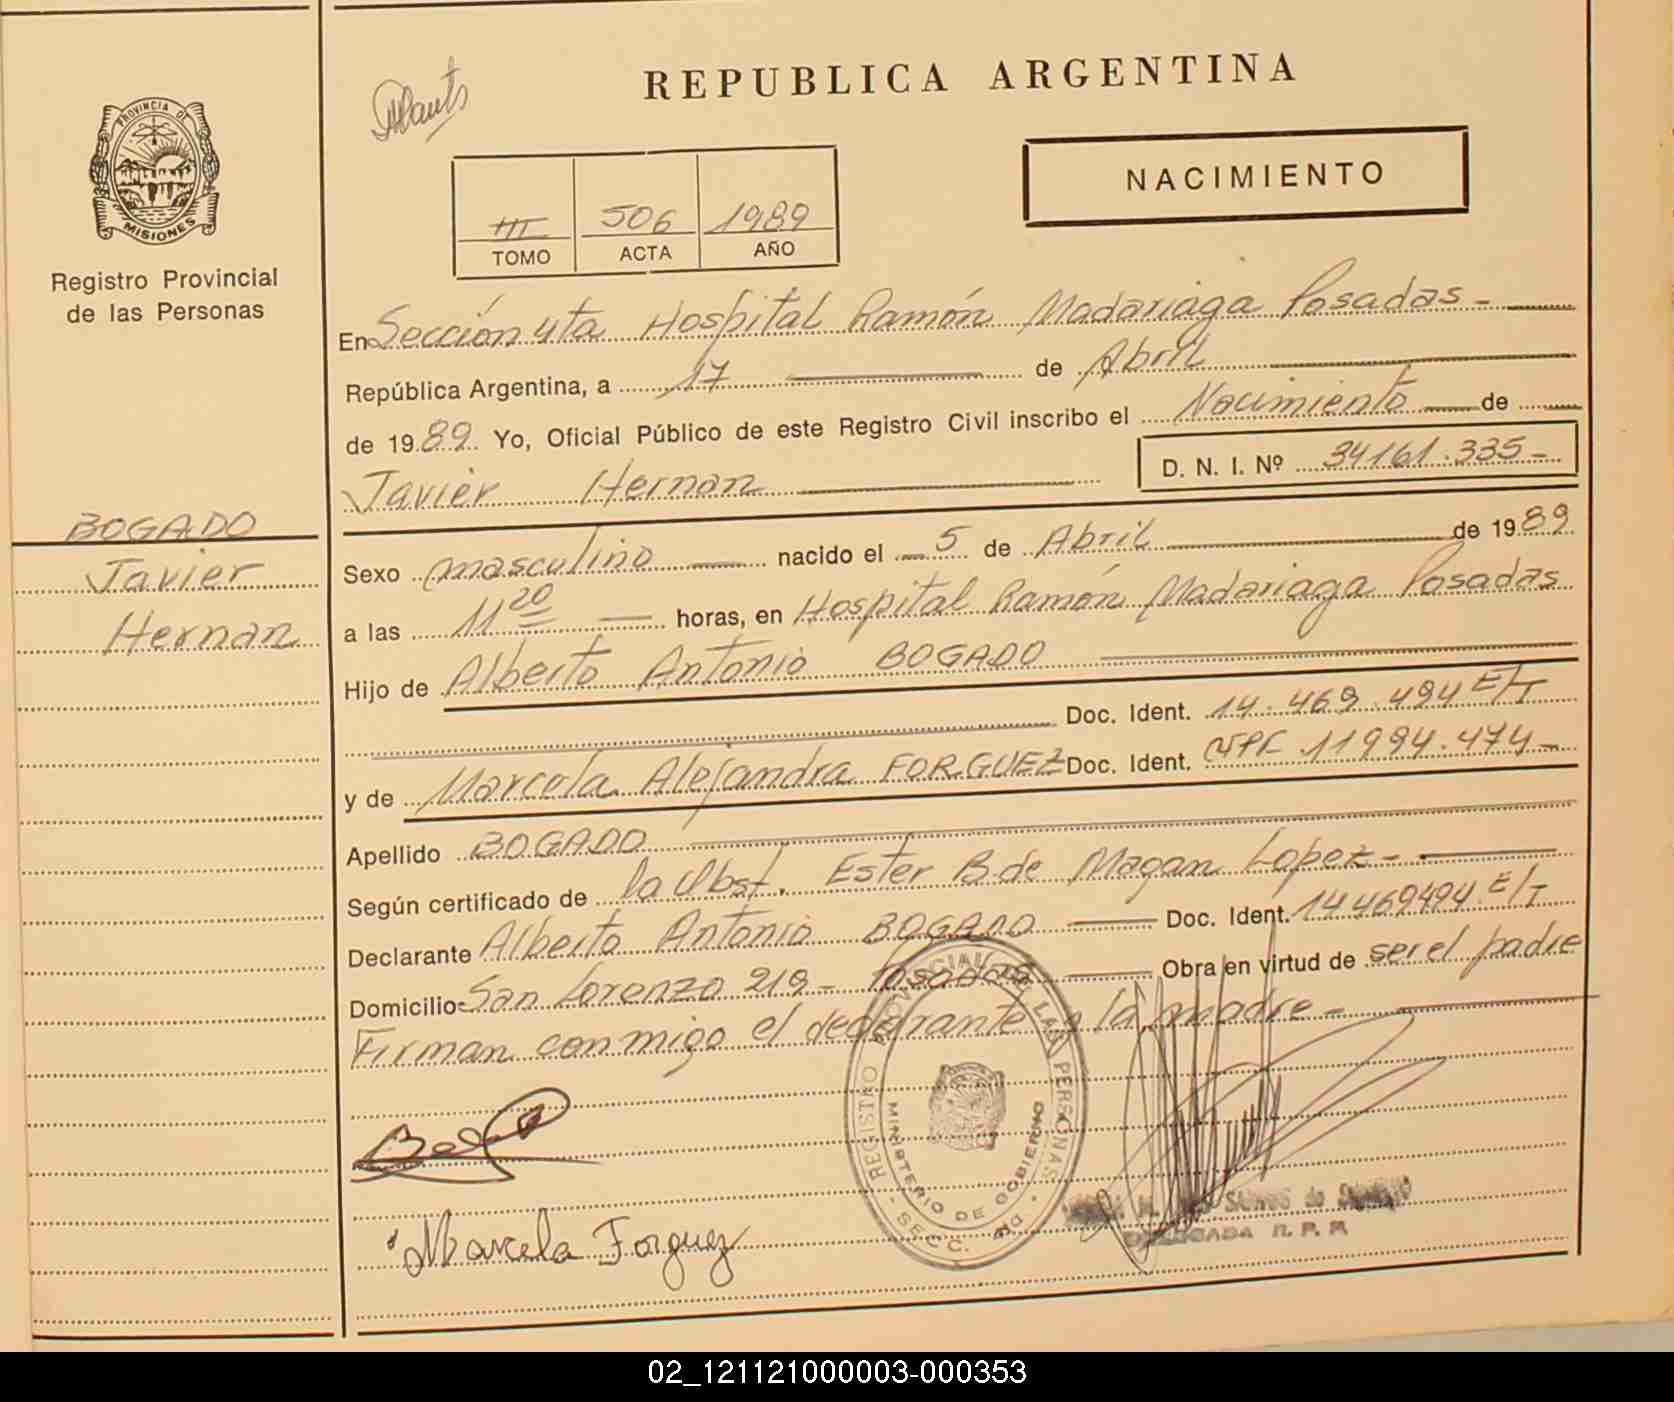 PROVINCIA DE
MISIONES
Registro Provincial
de las Personas
BOGADO
Javier
Hernan
REPUBLICA ARGENTINA
NACIMIENTO
III 506 1989
TOMO ACTA AÑO
En Sección 4ta Hospital Ramón Madariaga Posadas -
República Argentina, a 17 de Abril
de 1989. Yo, Oficial Público de este Registro Civil inscribo el Nacimiento de
Javier Hernan D. N. I. Nº 34161.335-
Sexo masculino nacido el 5 de Abril de 1989
a las 11 20 horas, en Hospital Ramón Madariaga Posadas
Hijo de Alberto Antonio BOGADO
Doc. Ident. 14.469.494 E/T
y de Marcela Alejandra FORGUEZ Doc. Ident. 11994.474-
Apellido BOGADO
Según certificado de la Obst. Ester B de Magan Lopez -
Declarante Alberto Antonio BOGADO Doc. Ident. 14469494 E/T
Domicilio San Lorenzo 219 - Posadas Obra en virtud de ser el padre
Firman conmigo el declarante y la madre -
REGISTRO PROVINCIAL DE LAS PERSONAS
MINISTERIO DE GOBIERNO
SECC.
Marcela Forguez
DELEGADA R. P. P.
02_121121000003-000353